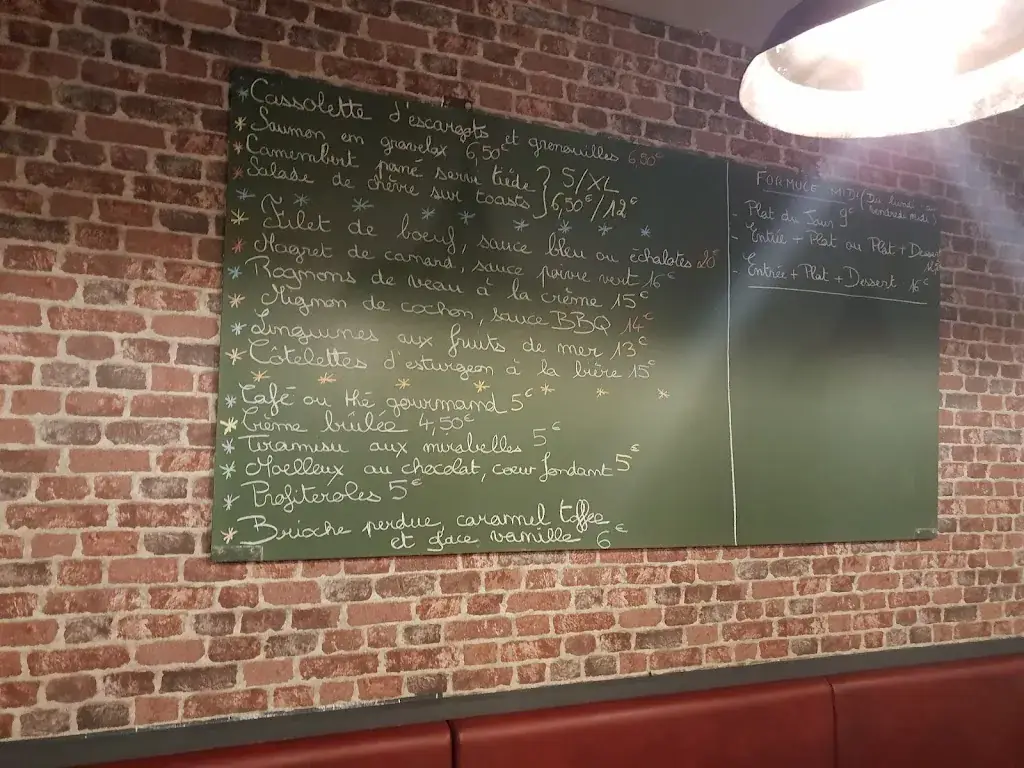 Cassolette d'escargots et grenouilles 6,50€
Saumon en gravelax 6,50€
Camembert pané servi tiède } S/XL
Salade de chèvre sur toasts } 6,50€/12€
Filet de boeuf, sauce bleu ou échalotes
Magret de canard, sauce poivre vert 16€
Rognons de veau à la crème 15€
Mignon de cochon, sauce BBQ 14€
Linguines aux fruits de mer 13€
Côtelettes d'esturgeon à la bière 15€
Café ou thé gourmand 5€
Crème brûlée 4,50€
Tiramisu aux mirabelles 5€
Moelleux au chocolat, coeur fondant 5€
Profiteroles 5€
Brioche perdue, caramel toffee
et glace vanille 6€
FORMULE MIDI (Du lundi au
vendredi midi)
- Plat du Jour 9€
- Entrée + Plat ou Plat + Dessert
- Entrée + Plat + Dessert 16€